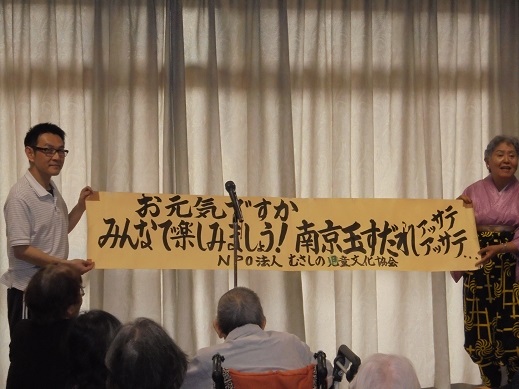 お元気ですか
みんなで楽しみましょう！南京玉すだれ アッサテ アッサテ...
NPO法人 むさしの児童文化協会